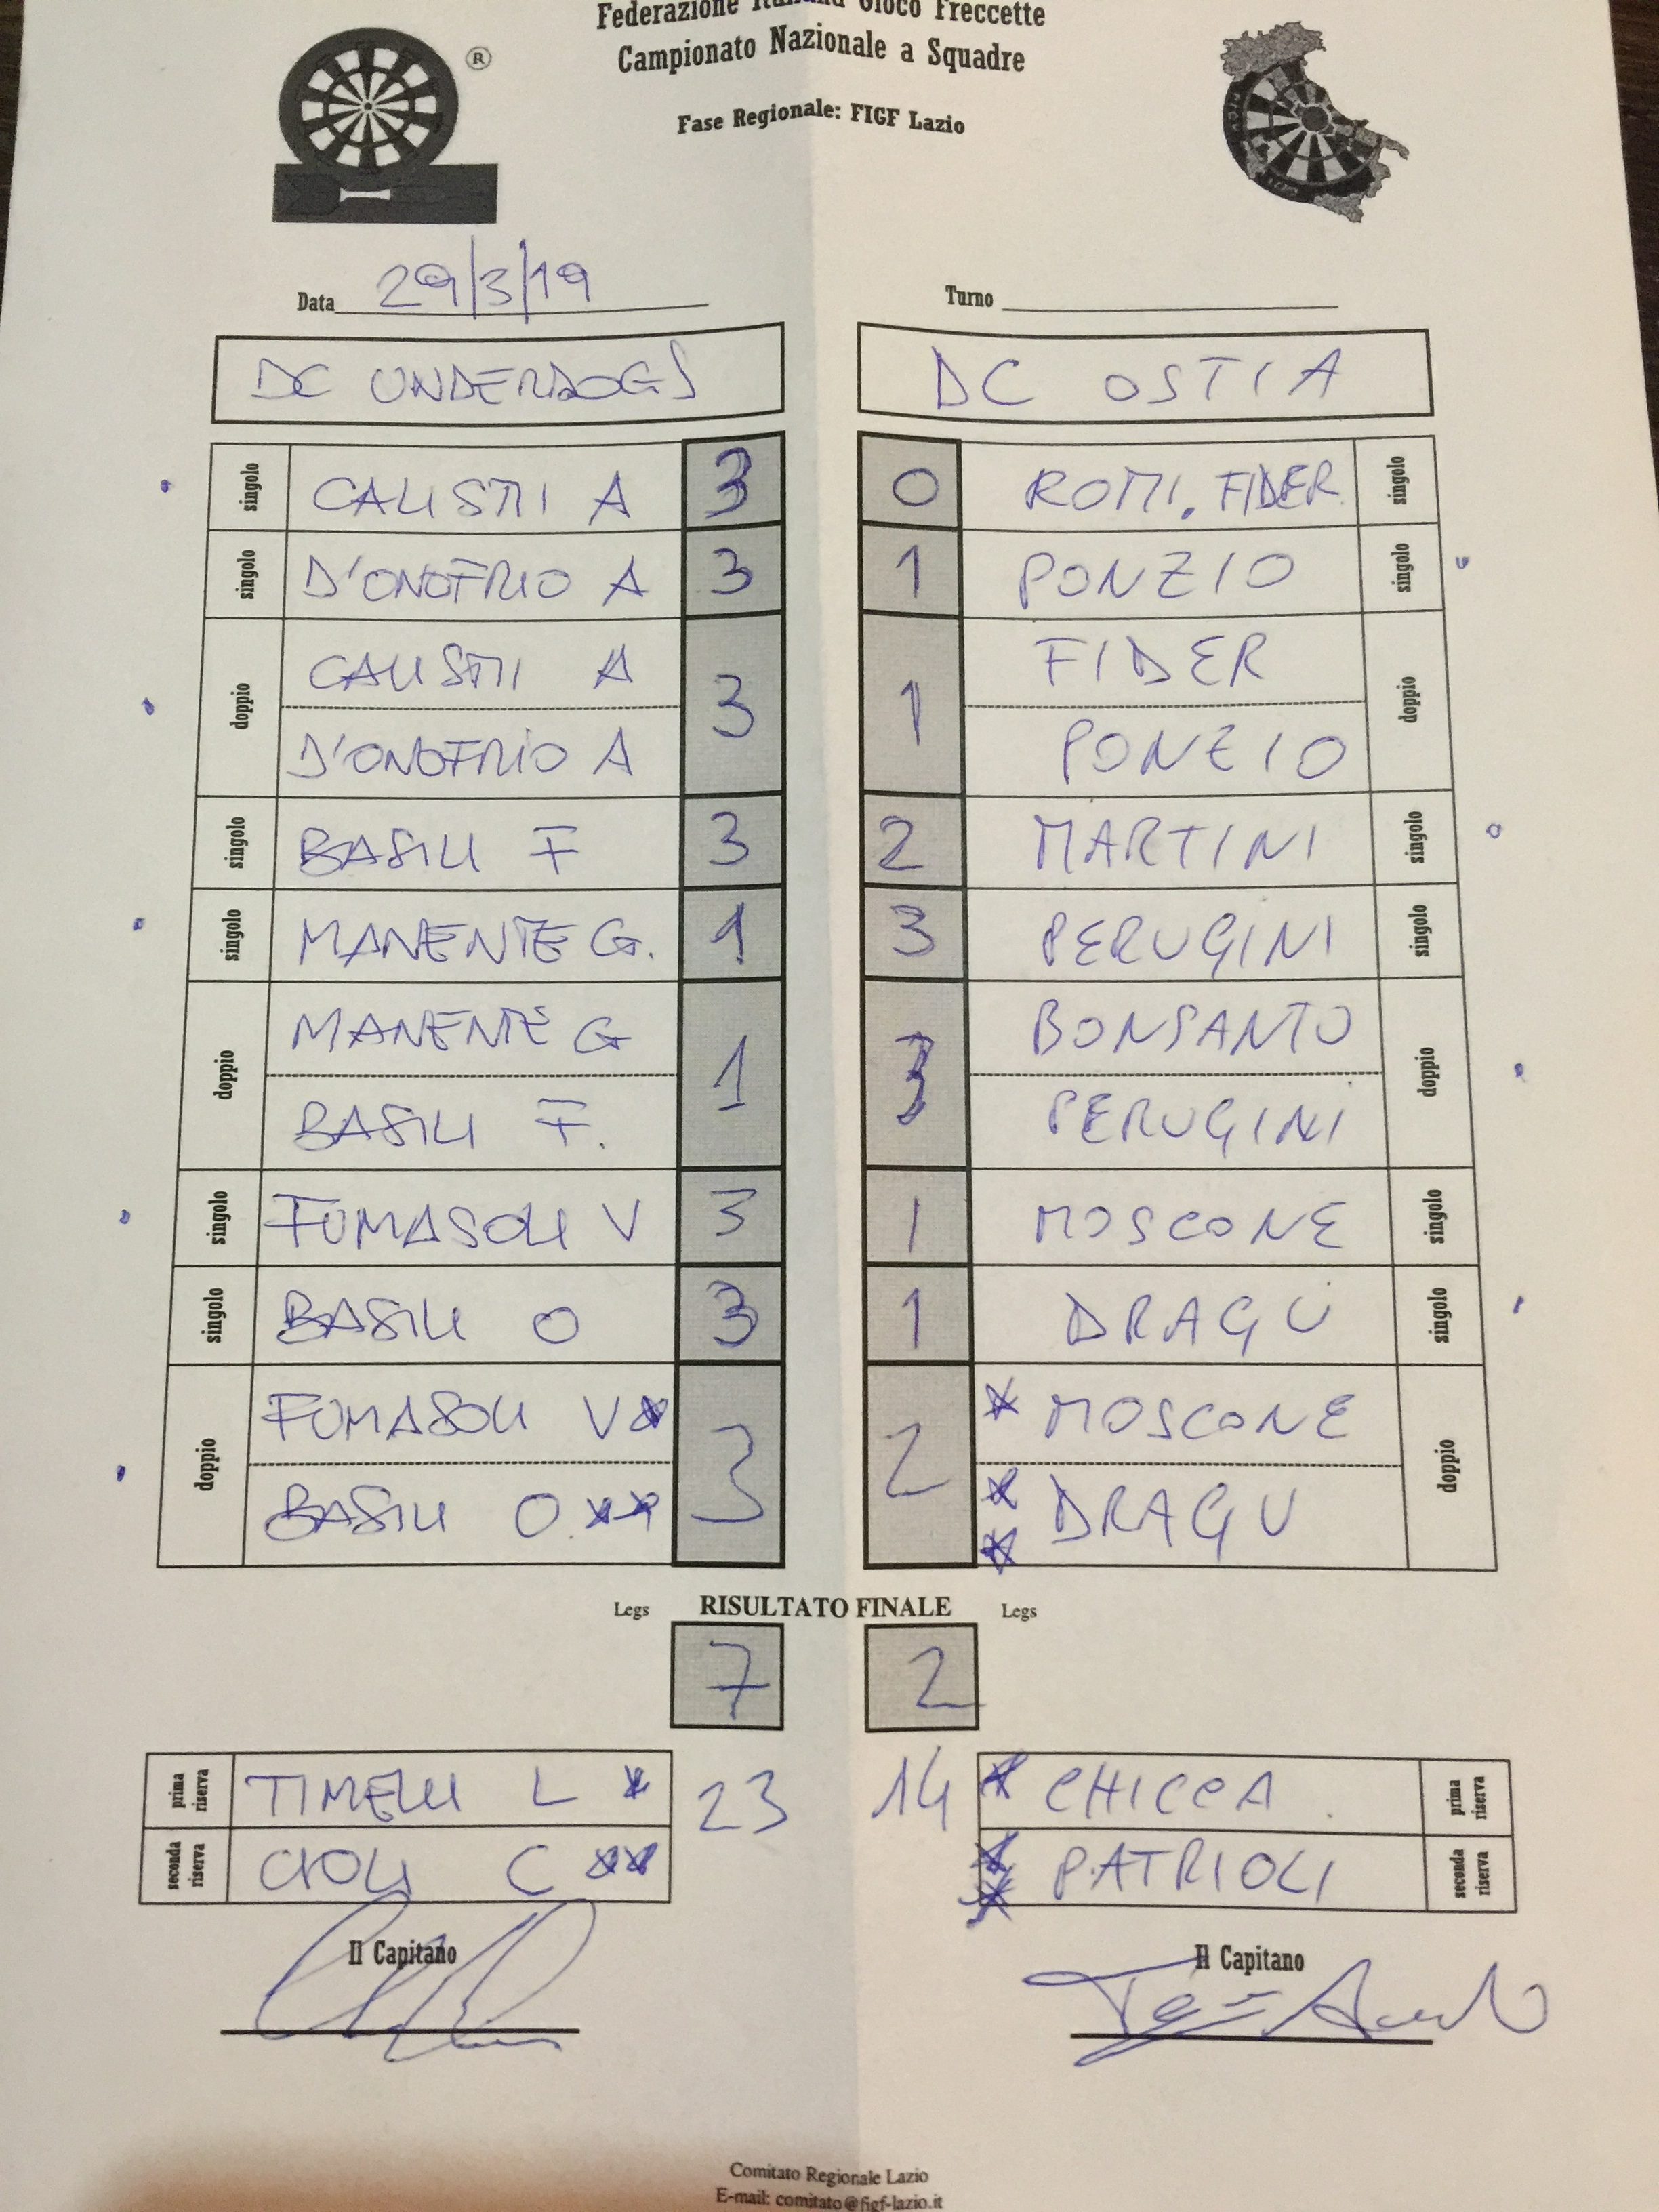 Federazione Italiana Gioco Freccette
Campionato Nazionale a Squadre
Fase Regionale: FIGF Lazio
®
Data 29/3/19 Turno
DC UNDERDOGS DC OSTIA
singolo CALISTI A 3 0 ROMI. FIDER. singolo
singolo D'ONOFRIO A 3 1 PONZIO singolo
CALISTI A FIDER
doppio 3 1 doppio
D'ONOFRIO A PONZIO
singolo BASILI F 3 2 MARTINI singolo
singolo MANENTE G. 1 3 PERUGINI singolo
MANENTE G BONSANTO
doppio 1 3 doppio
BASILI F. PERUGINI
singolo FUMASOLI V 3 1 MOSCONE singolo
singolo BASILI O 3 1 DRAGU singolo
FUMASOLI V* * MOSCONE
doppio 3 2 doppio
BASILI O ** ** DRAGU
Legs RISULTATO FINALE Legs
7 2
prima riserva TIMELLI L * 23 14 * CHICCA prima riserva
seconda riserva CIOLI C ** ** PATRIOLI seconda riserva
Il Capitano Il Capitano
Comitato Regionale Lazio
E-mail: comitato@figf-lazio.it